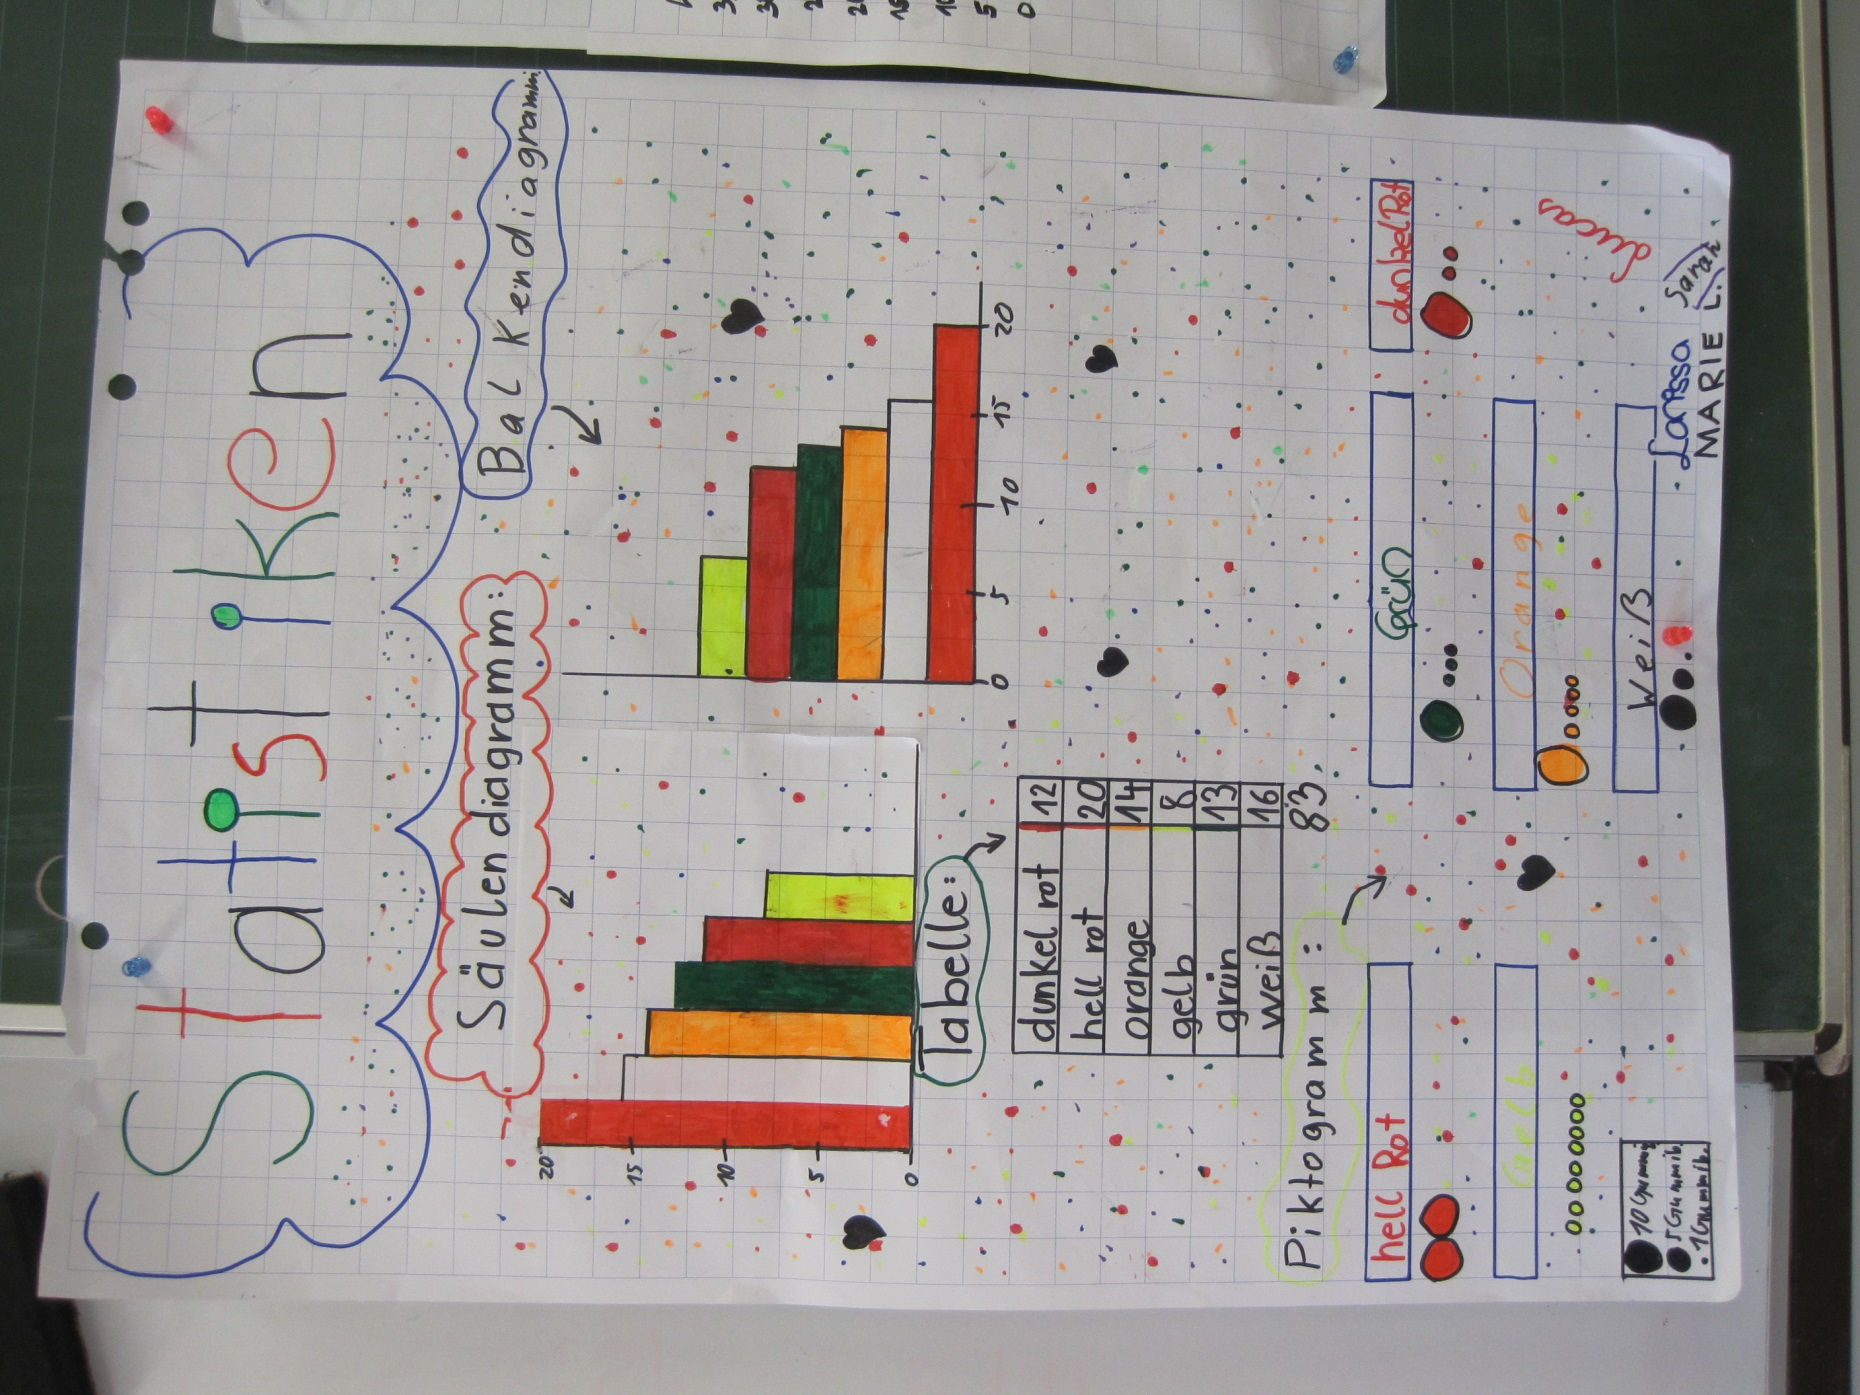 Statistiken
Säulendiagramm:
Balkendiagramm:
20
15
10
5
0
0
5
10
15
20
Tabelle:
dunkel rot 12
hell rot 20
orange 14
gelb 8
grün 13
weiß 16
83
Piktogramm:
hell Rot
Grün
dunkel Rot
Gelb
Orange
Weiß
10 Gummi
5 Gummib.
1 Gummib.
Lucas
Larissa
Sarah
MARIE L.
15
10
5
0